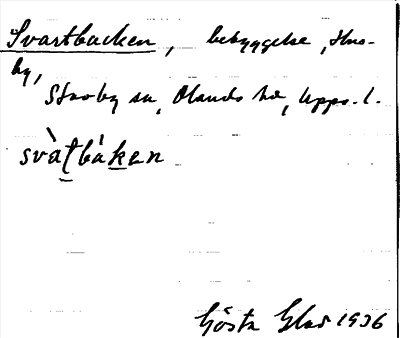 Svartbacken, bebyggelse, Hus-
by,
Skæby sn, Olands hd, Upps. l.
svàt̠bák̠en
Gösta Glad 1936